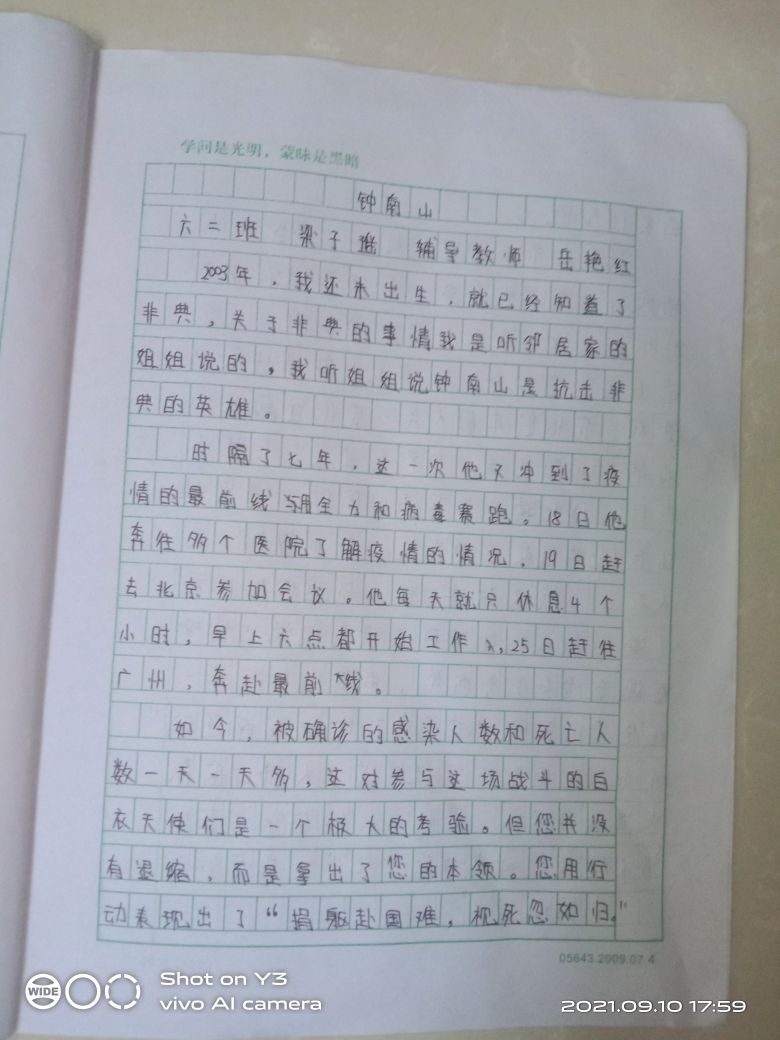 学问是光明，蒙昧是黑暗
钟南山
六二班 梁子瑞 辅导教师 岳艳红
2003年，我还未出生，就已经知道了
非典，关于非典的事情我是听邻居家的
姐姐说的，我听姐姐说钟南山是抗击非
典的英雄。
时隔了七年，这一次他又冲到了疫
情的最前线与用全力和病毒赛跑。18日他
奔往多个医院了解疫情的情况，19日赶
去北京参加会议。他每天就只休息4个
小时，早上六点都开始工作，25日赶往
广州，奔赴最前线。
如今，被确诊的感染人数和死亡人
数一天一天多，这对参与这场战斗的白
衣天使们是一个极大的考验。但您并没
有退缩，而是拿出了您的本领。您用行
动表现出了“捐躯赴国难，视死忽如归。”
05643.2009.07 4
WIDE
Shot on Y3
vivo AI camera
2021.09.10 17:59